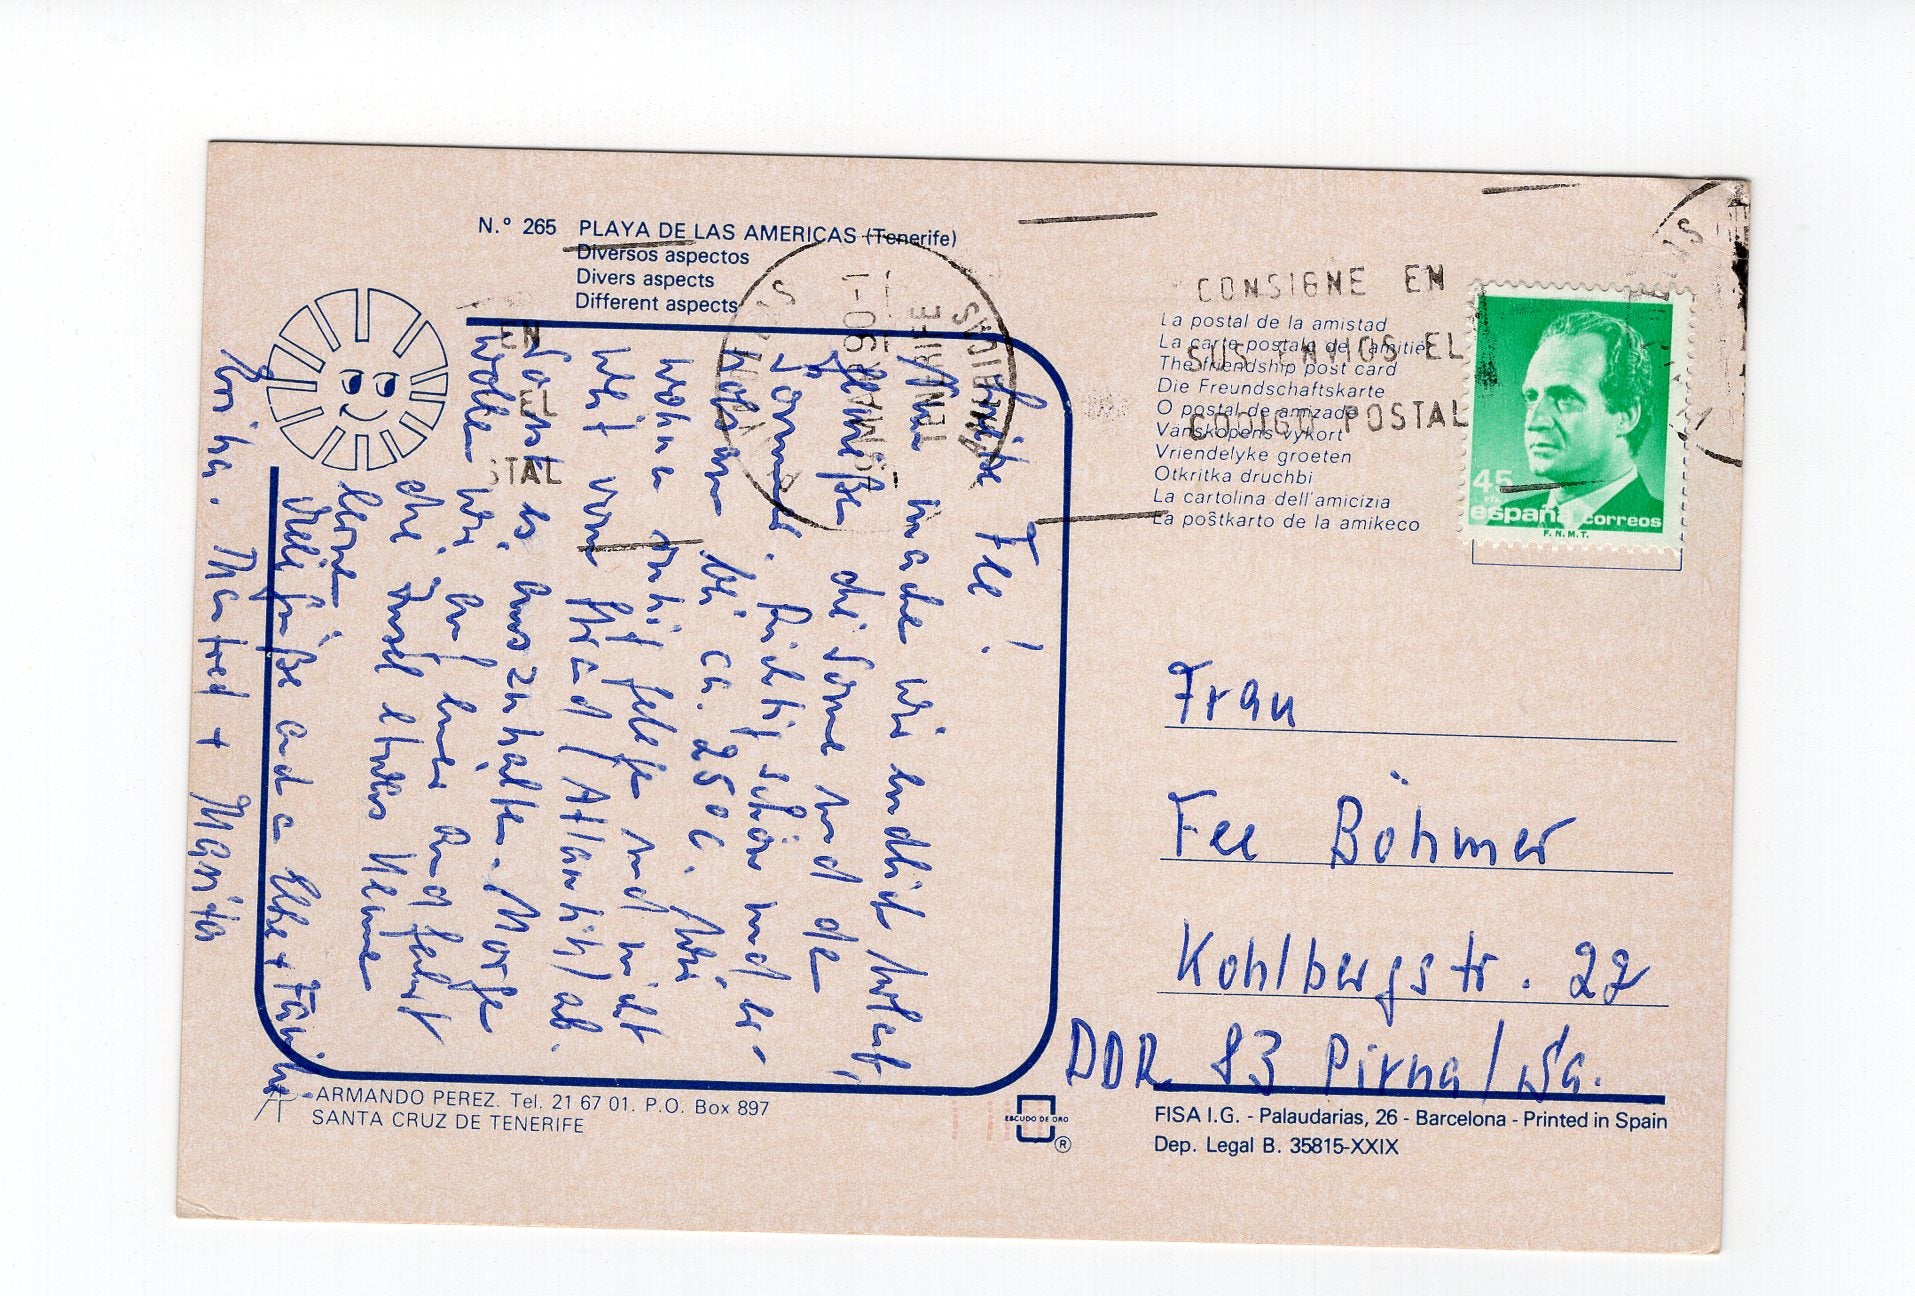 N.º 265 PLAYA DE LAS AMERICAS (Tenerife)
Diversos aspectos
Divers aspects
Different aspects
Liebe Fee!
Nun machen wir endlich Urlaub,
genießen die Sonne und die
Wärme. Richtig schön und er-
holsam bei ca. 25°C. Wir
wohnen ruhig gelegen und nicht
weit vom Strand (Atlantik) ab.
So ist es auszuhalten. Morgen
wollen wir ein und
die Insel etwas kennen
lernen.
Viele Grüße an die Eltern + Familie
Monika. Manfred + Marita
ARMANDO PEREZ. Tel. 21 67 01. P.O. Box 897
SANTA CRUZ DE TENERIFE
ESCUDO DE ORO
®
MAR 90
TENERIFE
CONSIGNE EN
SUS ENVIOS EL
CODIGO POSTAL
EN
EL
STAL
La postal de la amistad
La carte postale de l'amitié
The friendship post card
Die Freundschaftskarte
O postal de amizade
Vänskapens vykort
Vriendelyke groeten
Otkritka druchbi
La cartolina dell'amicizia
La poŝtkarto de la amikeco
45
PTA
españa correos
F.N.M.T.
Frau
Fee Böhmer
Kohlbergstr. 22
DDR 83 Pirna/Sa.
FISA I.G. - Palaudarias, 26 - Barcelona - Printed in Spain
Dep. Legal B. 35815-XXIX